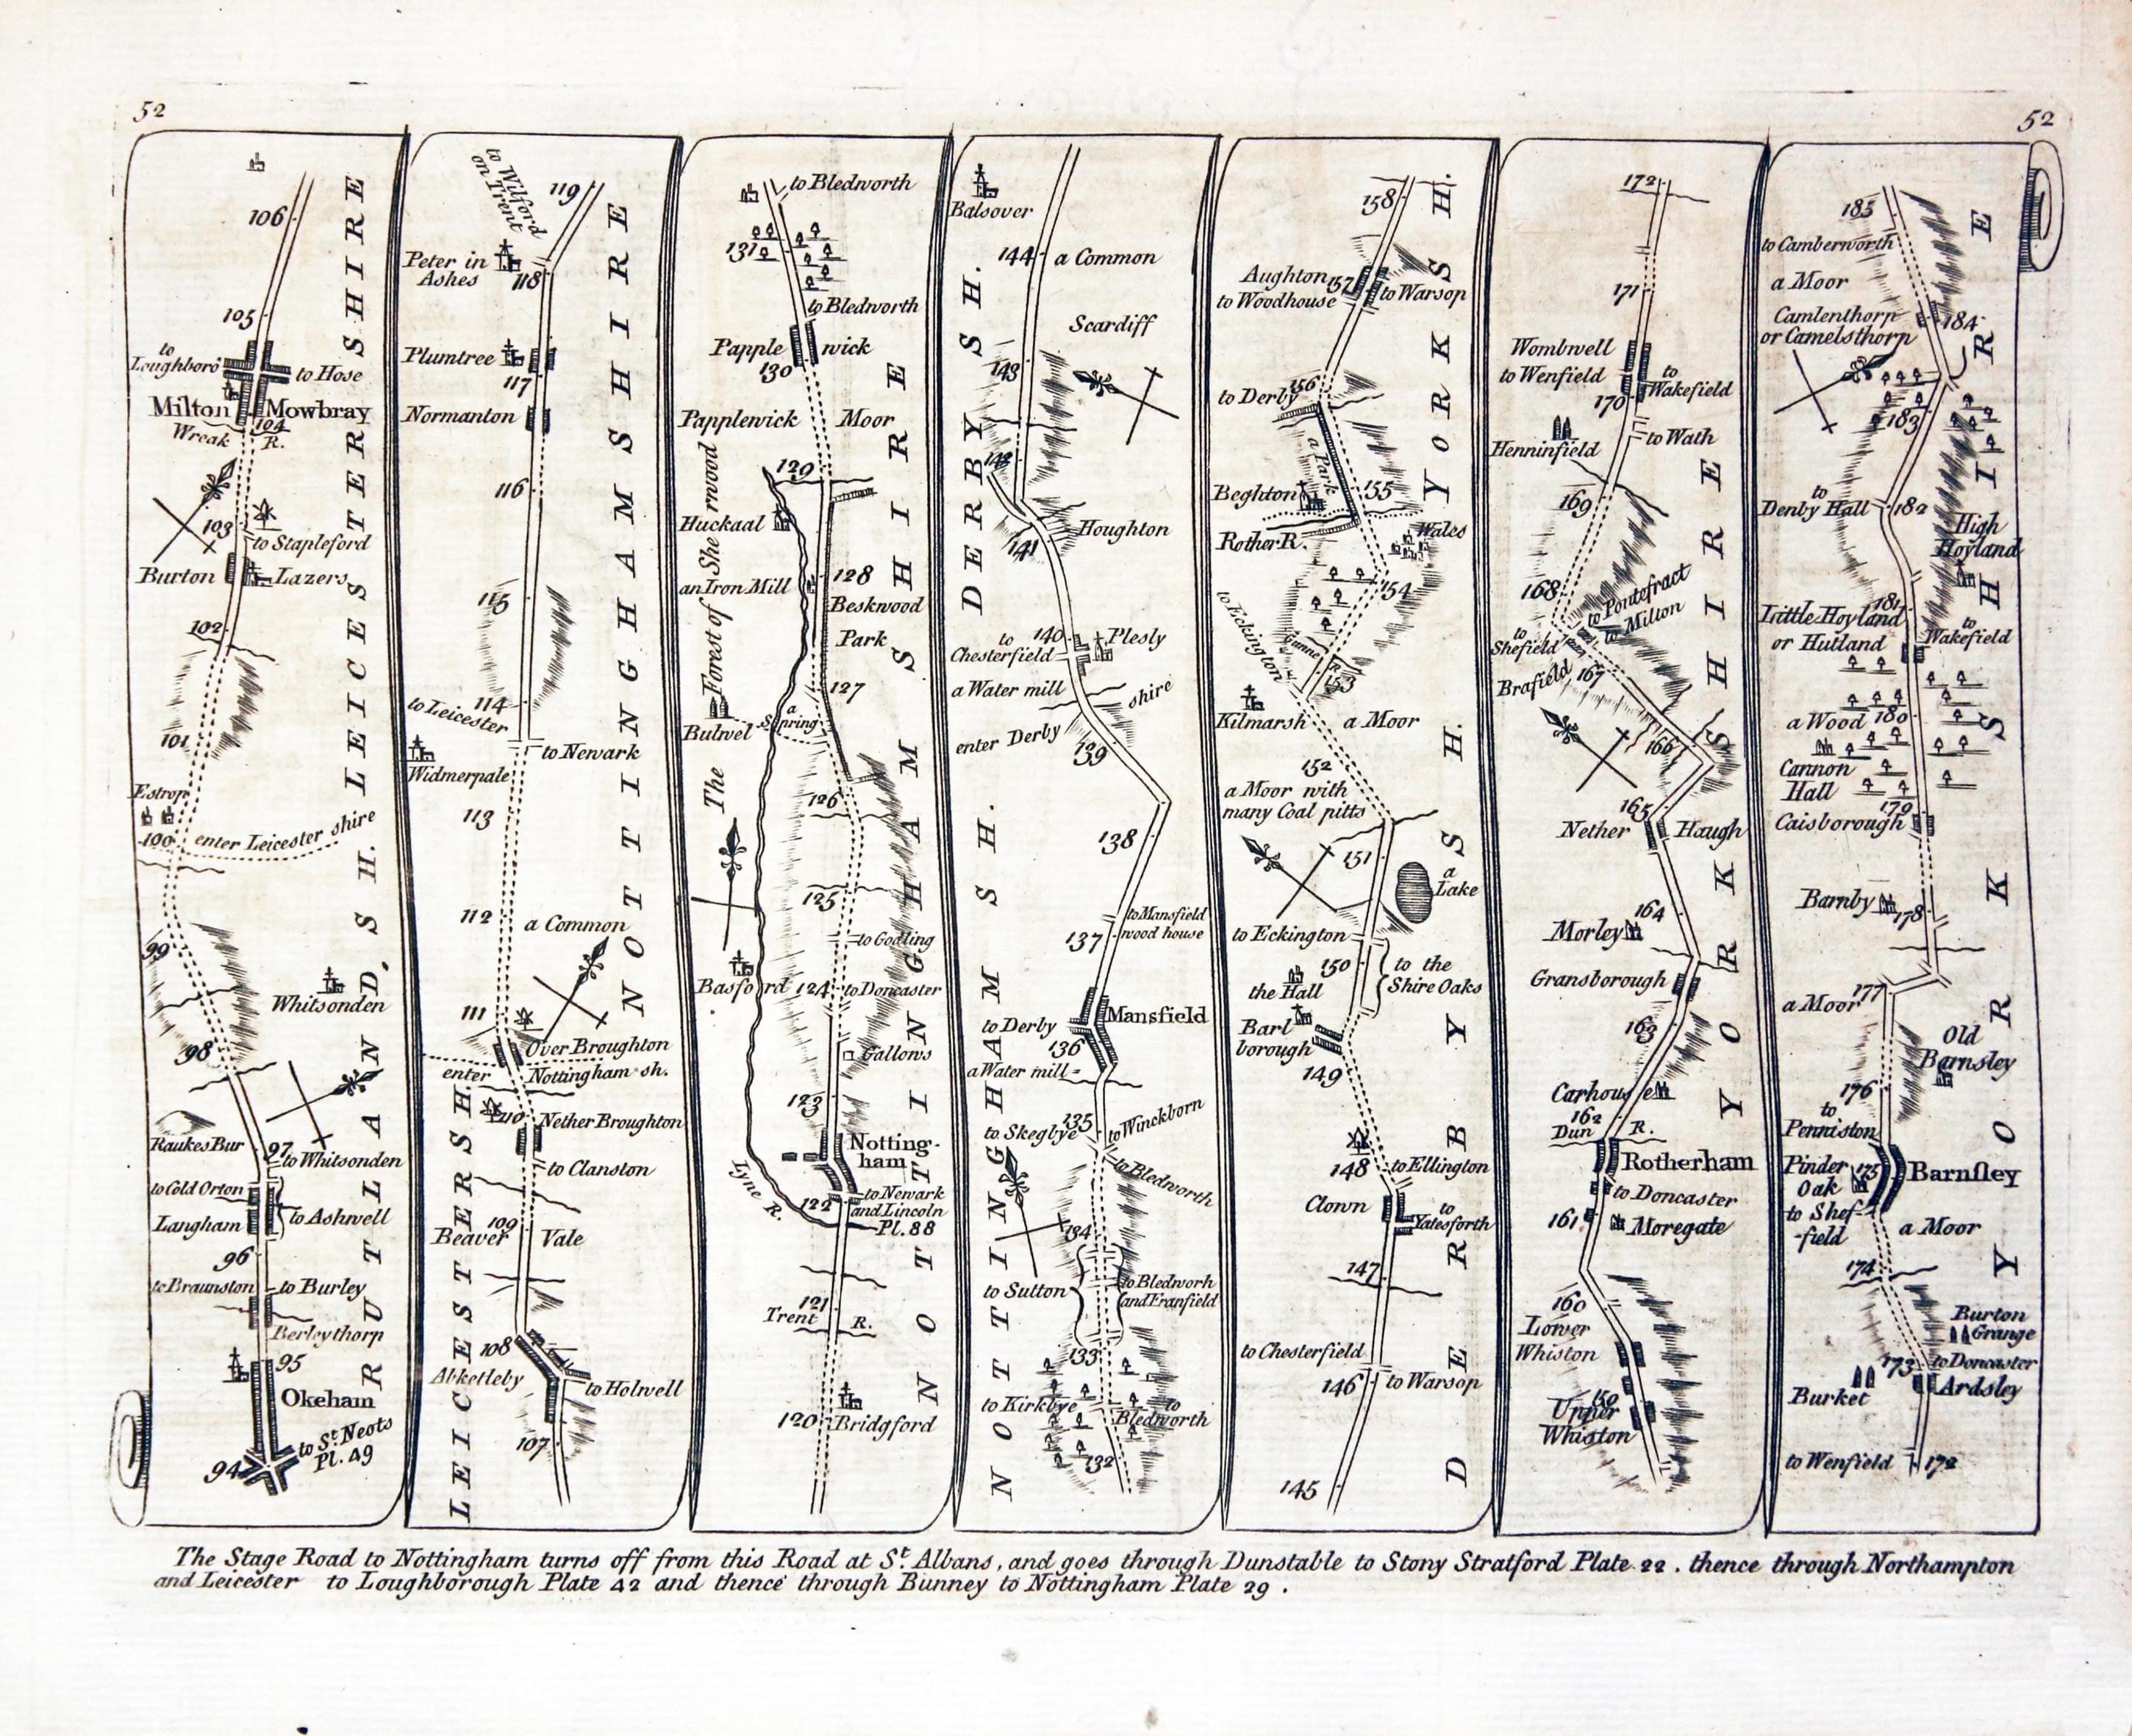 52
52
106
105
to
Loughboro
to Hose
Milton
Mowbray
104
Wreak
R.
103
to Stapleford
Burton
Lazers
102
101
Estrop
100
enter Leicester shire
99
Whitsonden
98
RaukesBur
97
to Whitsonden
to Cold Orton
Langham
to Ashwell
96
to Braunston
to Burley
Berleythorp
95
Okeham
to St. Neots
Pl. 49
94
RUTLAND. SH. LEICESTERSHIRE
to Wilford
on Trent
119
Peter in
Ashes
118
Plumtree
117
Normanton
116
115
114
to Leicester
to Newark
Widmerpale
113
112
a Common
111
Over Broughton
enter
Nottingham sh.
110
Nether Broughton
to Clanston
109
Beaver
Vale
108
Abketleby
to Holwell
107
LEICESTERSH.
NOTTINGHAMSHIRE
to Bledworth
131
to Bledworth
Papple
wick
130
Papplewick
Moor
129
Huckaal
an Iron Mill
128
Beskwood
Park
127
Bulwel
a
Spring
126
The Forest of Sherwood
125
to Godling
Basford
124
to Doncaster
Gallows
123
Notting-
ham
122
to Newark
and Lincoln
Pl. 88
Lyne R.
121
Trent
R.
120
Bridgford
NOTTINGHAMSHIRE
Balsover
144
a Common
Scardiff
143
142
Houghton
141
140
to
Chesterfield
Plesly
a Water mill
enter Derby
shire
139
138
to Mansfield
wood house
137
to Derby
Mansfield
136
a Water mill
135
to Skegbye
to Winckborn
to Bledworth
134
to Sutton
to Bledworh
and Franfield
133
to Kirkbye
to
Bledworth
132
NOTTINGHAMSH.
DERBYSH.
158
Aughton
157
to Woodhouse
to Warsop
156
to Derby
a Park
155
Beghton
Rother R.
Wales
154
to Eckington
153
Kilmarsh
a Moor
152
a Moor with
many Coal pitts
151
a
Lake
to Eckington
150
to the
Shire Oaks
the Hall
Barl
borough
149
148
to Ellington
Clown
to
Yatesforth
147
to Chesterfield
146
to Warsop
145
DERBYSH.
YORKSH.
172
171
Wombwell
to Wenfield
to
Wakefield
170
Henninfield
to Wath
169
168
to Pontefract
to Milton
to
Shefield
Brafield
167
166
165
Nether
Haugh
164
Morley
Gransborough
163
Carhouse
162
Dun
R.
Rotherham
to Doncaster
161
Moregate
160
Lower
Whiston
159
Upper
Whiston
YORKSHIRE
185
to Camberworth
a Moor
Camlenthorp
or Camelsthorp
184
183
to
Denby Hall
182
High
Hoyland
181
Little Hoyland
or Hutland
to
Wakefield
a Wood
180
Cannon
Hall
179
Caisborough
Barnby
178
a Moor
177
Old
Barnsley
176
to
Penniston
Pinder
Oak
175
Barnsley
to Shef-
-field
a Moor
174
Burton
Grange
173
to Doncaster
Burket
Ardsley
to Wenfield
172
YORKSHIRE
The Stage Road to Nottingham turns off from this Road at St. Albans, and goes through Dunstable to Stony Stratford Plate 22. thence through Northampton
and Leicester to Loughborough Plate 42 and thence through Bunney to Nottingham Plate 29.